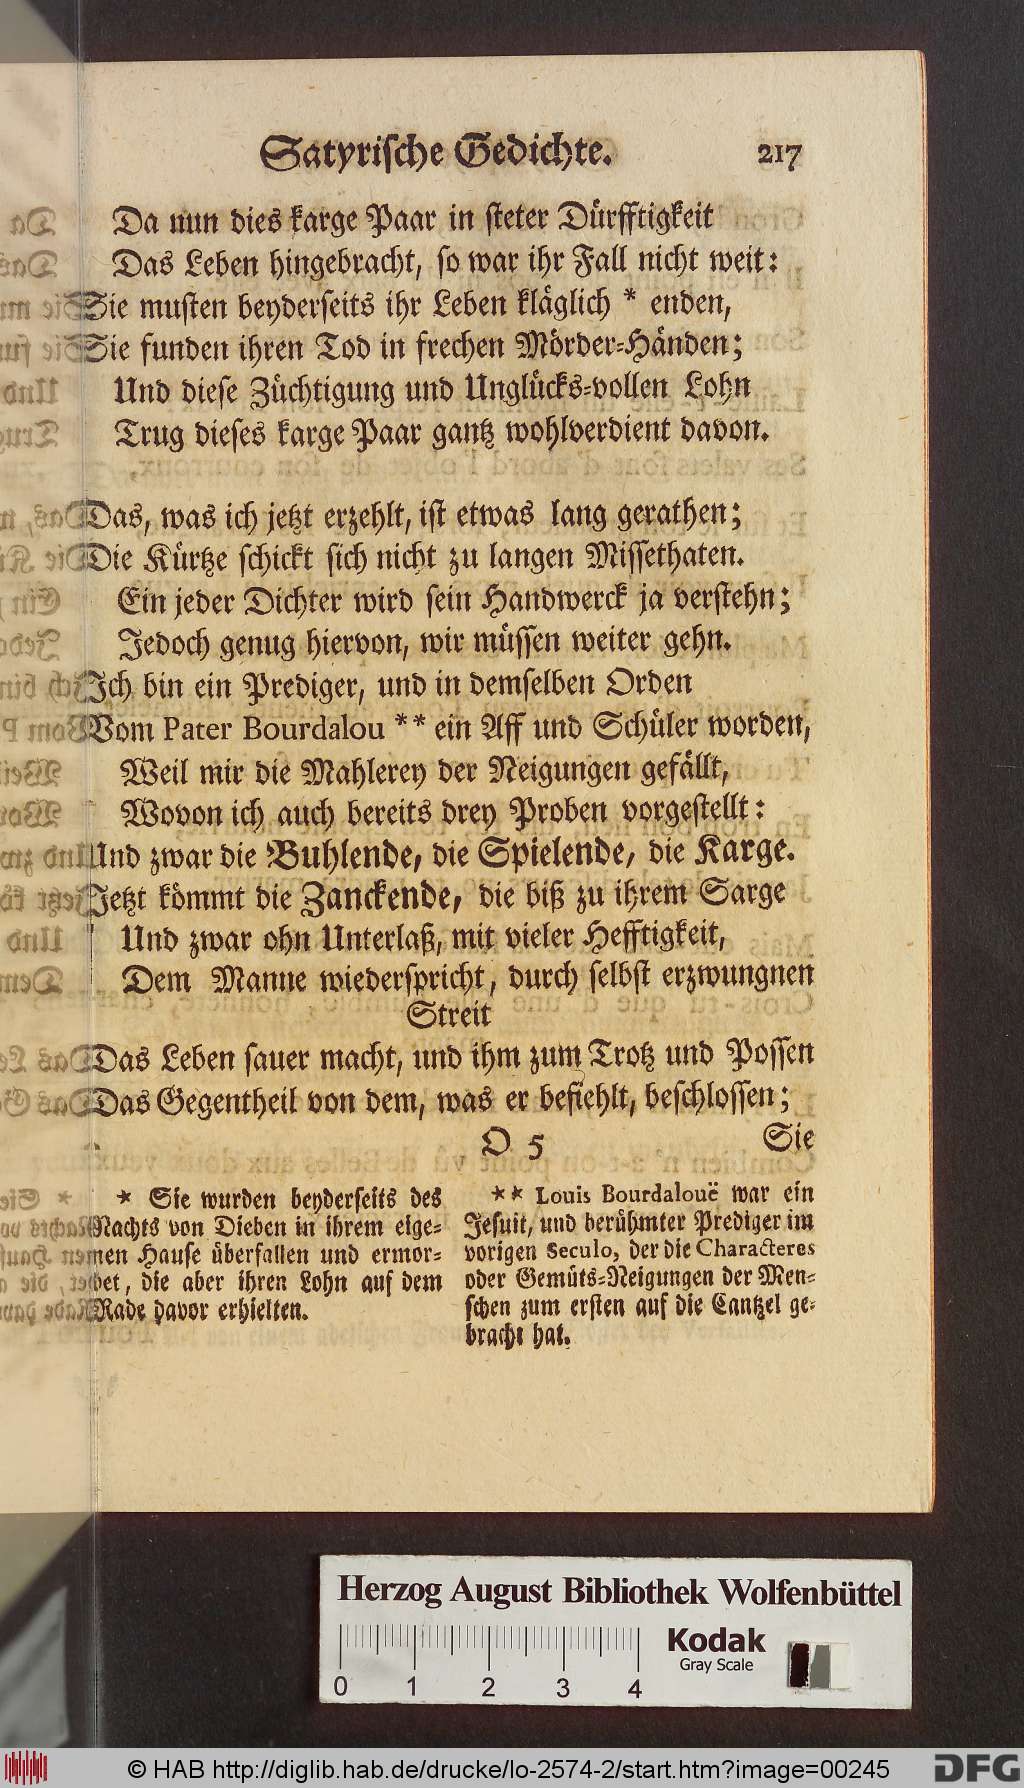 Satyrische Gedichte. 217
Da nun dies karge Paar in steter Dürfftigkeit
Das Leben hingebracht, so war ihr Fall nicht weit:
Sie musten beyderseits ihr Leben kläglich * enden,
Sie funden ihren Tod in frechen Mörder-Händen;
Und diese Züchtigung und Unglücks-vollen Lohn
Trug dieses karge Paar gantz wohlverdient davon.
Das, was ich jetzt erzehlt, ist etwas lang gerathen;
Die Kürtze schickt sich nicht zu langen Missethaten.
Ein jeder Dichter wird sein Handwerck ja verstehn;
Jedoch genug hiervon, wir müssen weiter gehn.
Ich bin ein Prediger, und in demselben Orden
Vom Pater Bourdalou ** ein Aff und Schüler worden,
Weil mir die Mahlerey der Neigungen gefällt,
Wovon ich auch bereits drey Proben vorgestellt:
Und zwar die Buhlende, die Spielende, die Karge.
Jetzt kömmt die Zanckende, die biß zu ihrem Sarge
Und zwar ohn Unterlaß, mit vieler Hefftigkeit,
Dem Manne wiederspricht, durch selbst erzwungnen
Streit
Das Leben sauer macht, und ihm zum Trotz und Possen
Das Gegentheil von dem, was er befiehlt, beschlossen;
O 5 Sie
* Sie wurden beyderseits des
Nachts von Dieben in ihrem eige-
nen Hause überfallen und ermor-
det, die aber ihren Lohn auf dem
Rade davor erhielten.
** Louis Bourdalouë war ein
Jesuit, und berühmter Prediger im
vorigen Seculo, der die Characteres
oder Gemüts-Neigungen der Men-
schen zum ersten auf die Cantzel ge-
bracht hat.
Herzog August Bibliothek Wolfenbüttel
Kodak
Gray Scale
0 1 2 3 4
© HAB http://diglib.hab.de/drucke/lo-2574-2/start.htm?image=00245
DFG